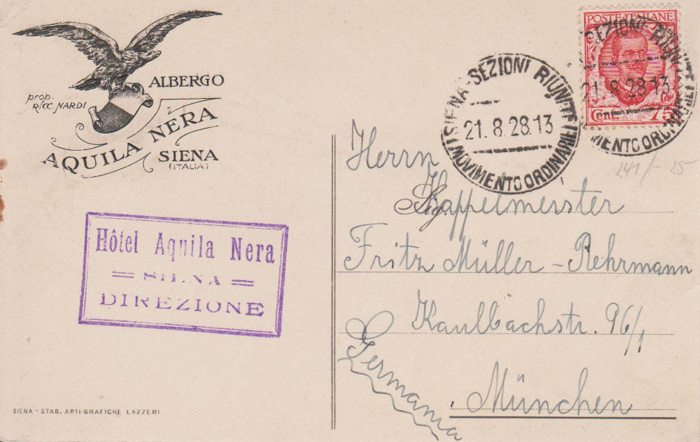 ALBERGO
prop.
RICC. NARDI
AQUILA NERA
SIENA
(ITALIA)
Hôtel Aquila Nera
SIENA
DIREZIONE
SIENA - STAB. ARTI GRAFICHE LAZZERI
SIENA - SEZIONI RIUNITE
21.8.28.13
(MOVIMENTO ORDINARIE)
POSTE ITALIANE
SEZIONI RIUNITE
21.8.28.13
MENTO ORDINARIE
Cent. 75
241/-25
Herrn
Sig. Kappelmeister
Fritz Müller-Rehrmann
Kaulbachstr. 96/1
München
Germania